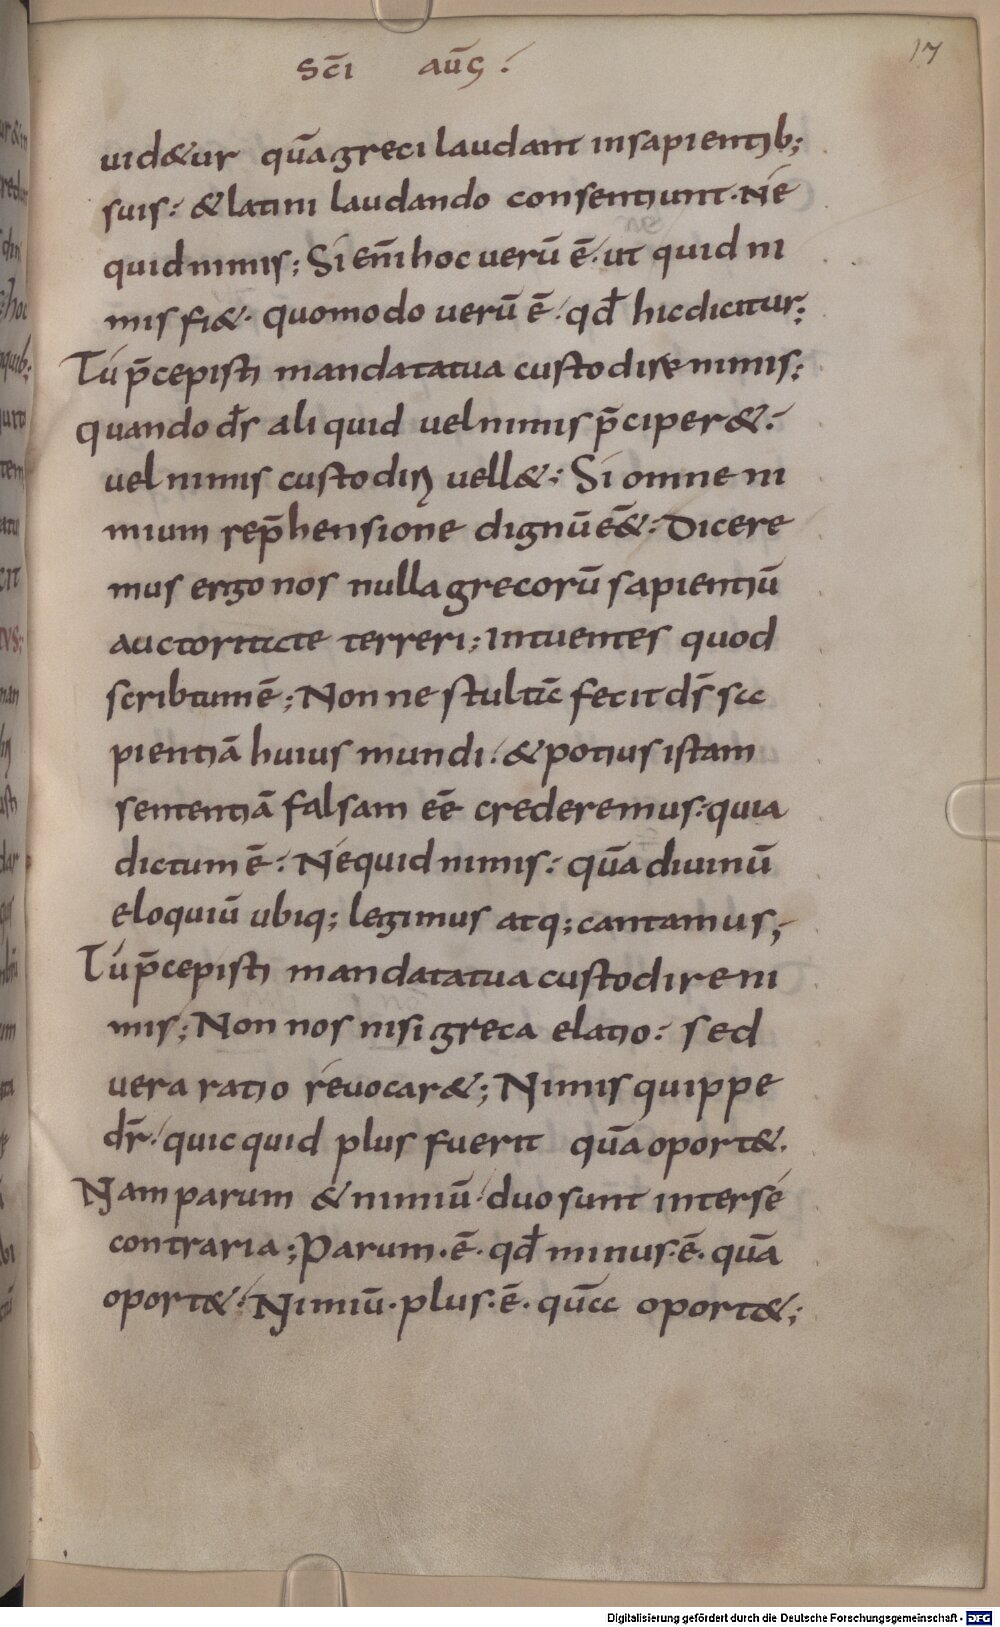 sc̄i aūg:
17
uid&ur quā greci laudant in sapientib;
suis: & latini laudando consentiunt. Ne
quid nimis; Si eni̅ hoc uerū ē. ut quid ni
mis fi&. quomodo uerū ē. qđ hic dicitur;
Tu p̄cepisti mandata tua custodire nimis;
quando dr̄ aliquid uel nimis p̄ciper&:
uel nimis custodiꝶ uell&: Si omne ni
mium rep̄hensione dignū ēē&: Dicere
mus ergo nos nulla grecorū sapientiū
auctoritate terreri; Intuentes quod
scribtum ē; Nonne stultā fecit ds̄ sa
pientiā huius mundi. & potius istam
sententiā falsam eē crederemus: quia
dictum ē: Nequid nimis: quā diuinū
eloquiū ubiq; legimus atq; cantamus;
Tu p̄cepisti mandata tua custodire ni
mis; Non nos nisi greca elatio: sed
uera ratio reuocar&; Nimis quippe
dr̄. quicquid plus fuerit quā oport&.
Nam parum & nimiū duo sunt inter se
contraria; Parum. ē. qđ minus. ē. quā
oport&. Nimiū. plus. ē. quā oport&;
Digitalisierung gefördert durch die Deutsche Forschungsgemeinschaft - DFG